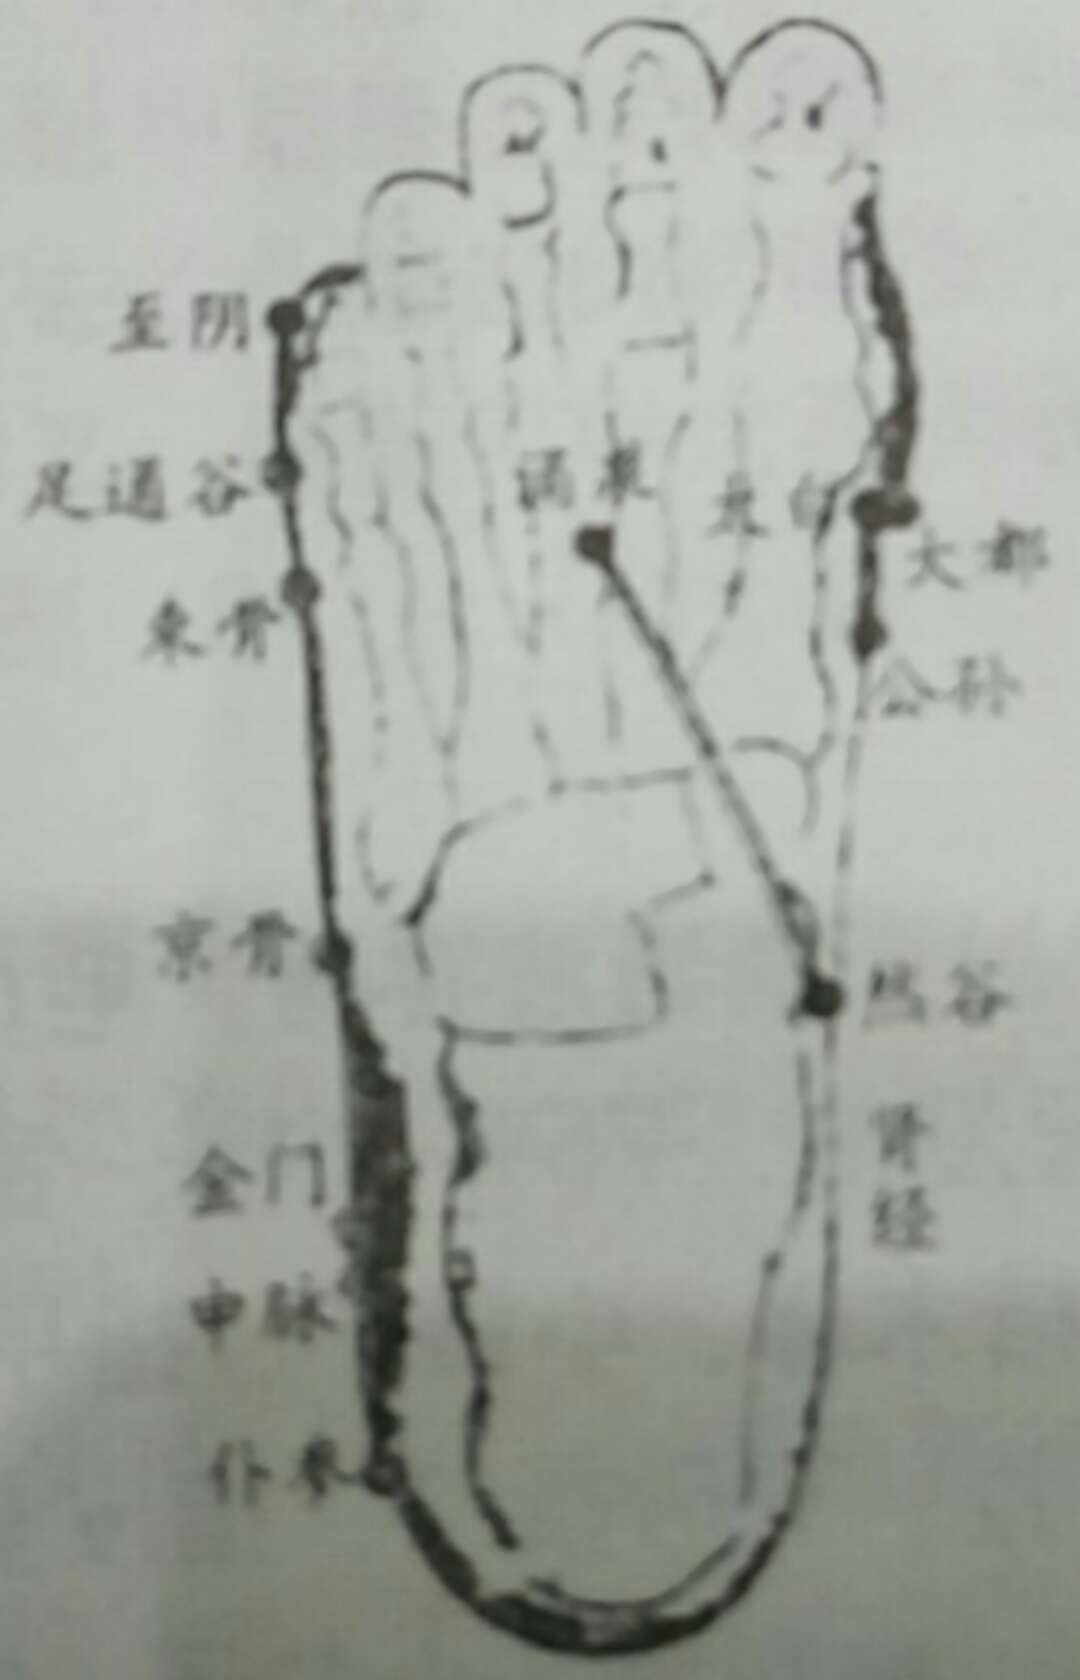 至阴
足通谷
涌泉
太白
大都
束骨
公孙
京骨
然谷
肾经
金门
申脉
仆参